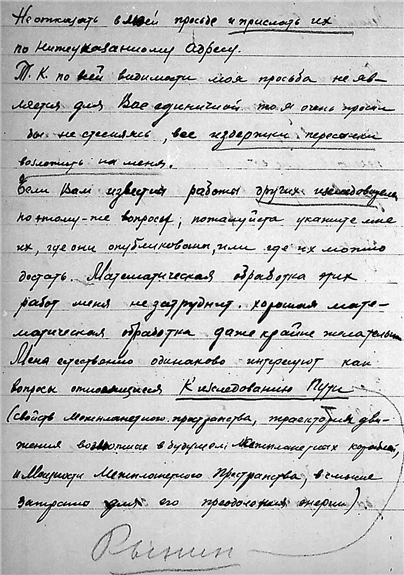 Не отказать в моей просьбе и прислать их
по нижеуказанному адресу.
Т.К. по всей видимости моя просьба не яв-
ляется для Вас единичной то я очень просил
бы не стесняясь, все издержки пересылки
возложить на меня.
Если Вам известны работы других исследователей
по этому-же вопросу, пожалуйста укажите мне
их, где они опубликованы, или где их можно
достать. Математическая обработка этих
работ меня не затруднит. хорошая мате-
матическая обработка даже крайне желательна
Меня естественно одинаково интересуют как
вопросы относящиеся К исследованию Пути
(свойств Межпланетного пространства, траектории дви-
жения возможных в будущем Межпланетных кораблей,
и Мощности Межпланетного Пространства, в смысле
затрат для его преодоления энергии)
Рынин